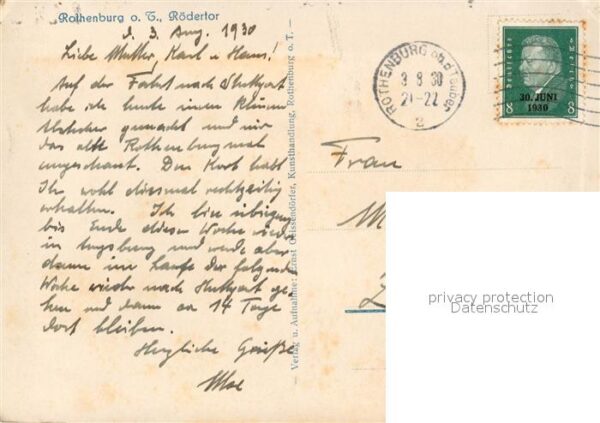 Rothenburg o. T., Rödertor
d. 3. Aug. 1930
Liebe Mutter, Karl u Hans!
Auf der Fahrt nach Stuttgart
habe ich heute einen kleinen
gemacht und mir
das alte Rothenburg mal
angeschaut. Den Korb habt
Ihr wohl diesmal rechtzeitig
erhalten. Ich bin übrigens
bis Ende dieser Woche wieder
in Augsburg und werde aber
dann im Laufe der folgenden
Woche wieder nach Stuttgart ge-
hen und dann ca 14 Tage
dort bleiben.
Herzliche Grüße
Verlag u. Aufnahme: Ernst Geissendörfer, Kunsthandlung, Rothenburg o. T.
ROTHENBURG ob d Tauber
3 8 30
21-22
2
DEUTSCHES REICH
30. JUNI
1930
8 8
Frau
M
privacy protection
Datenschutz